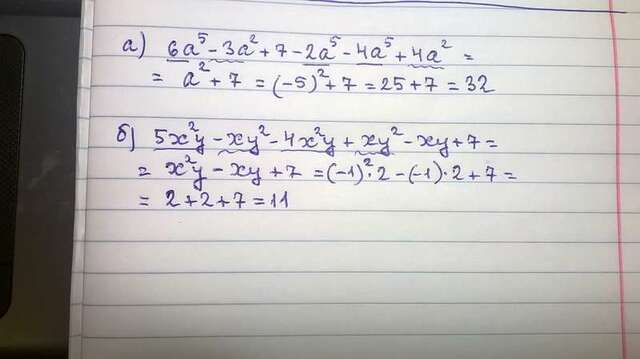 а) 6a⁵ - 3a² + 7 - 2a⁵ - 4a⁵ + 4a² =
= a² + 7 = (-5)² + 7 = 25 + 7 = 32
б) 5x²y - xy² - 4x²y + xy² - xy + 7 =
= x²y - xy + 7 = (-1)² · 2 - (-1) · 2 + 7 =
= 2 + 2 + 7 = 11